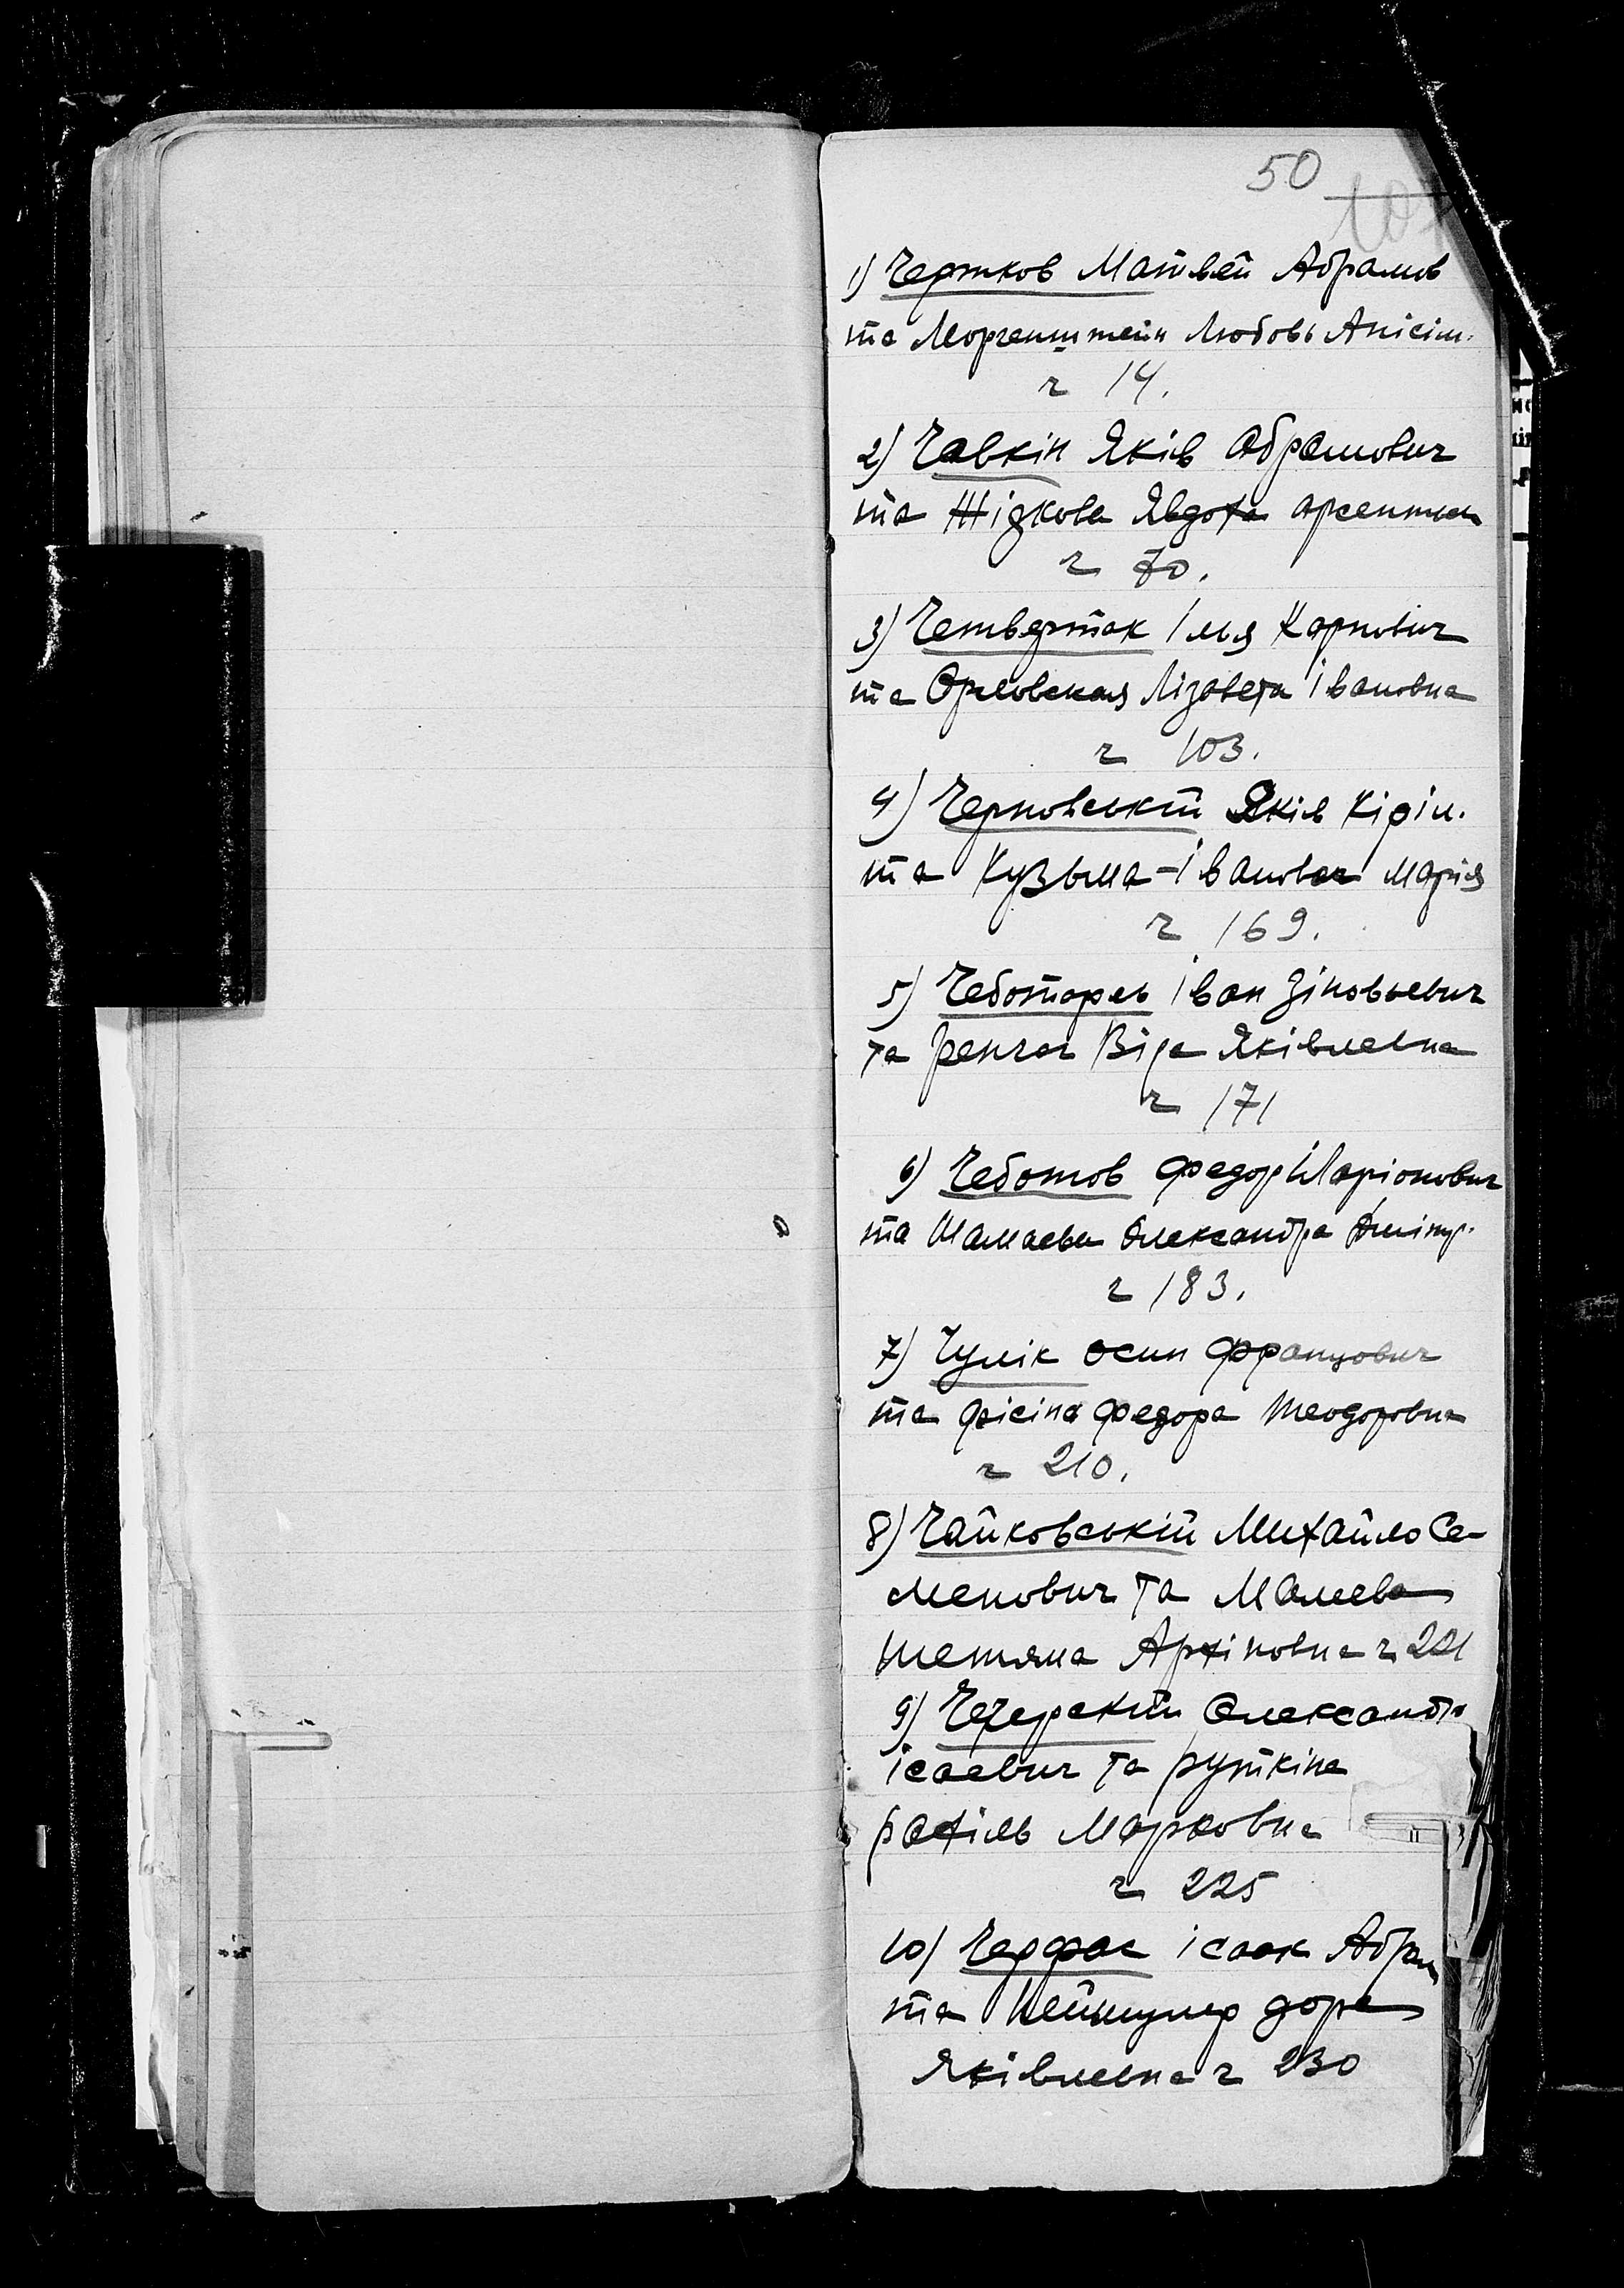 50
107
1) Чертков Матвей Абрамов
та Моргенштейн Любовь Анісім.
ч 14.
2) Чавкін Яків Абрамович
та Жідкова Явдоха Арсентьев
ч 70.
3) Четвертак Ілья Карпович
та Орловская Лізавета Івановна
ч 103.
4) Черновський Яків Кіріл.
та Кузьма-Іванова Марія
ч 169.
5) Чеботарев Іван Зіновьевич
та Віра Яківлевна
ч 171
6) Чеботов Федор Иларіонович
та Шамаева Олександра Дмітр.
ч 183.
7) Чулік Осип Францович
та Фісіна Федора Теодоровна
ч 210.
8) Чайковській Михайло Се-
менович та Малеева
Тетяна Архіповна ч 221
9) Чечерский Олександр
Ісаевич та Руткіна
Рахіль Марковна
ч 225
10) Черфас Ісаак Абрам
та Дора
Яківлевна ч 230